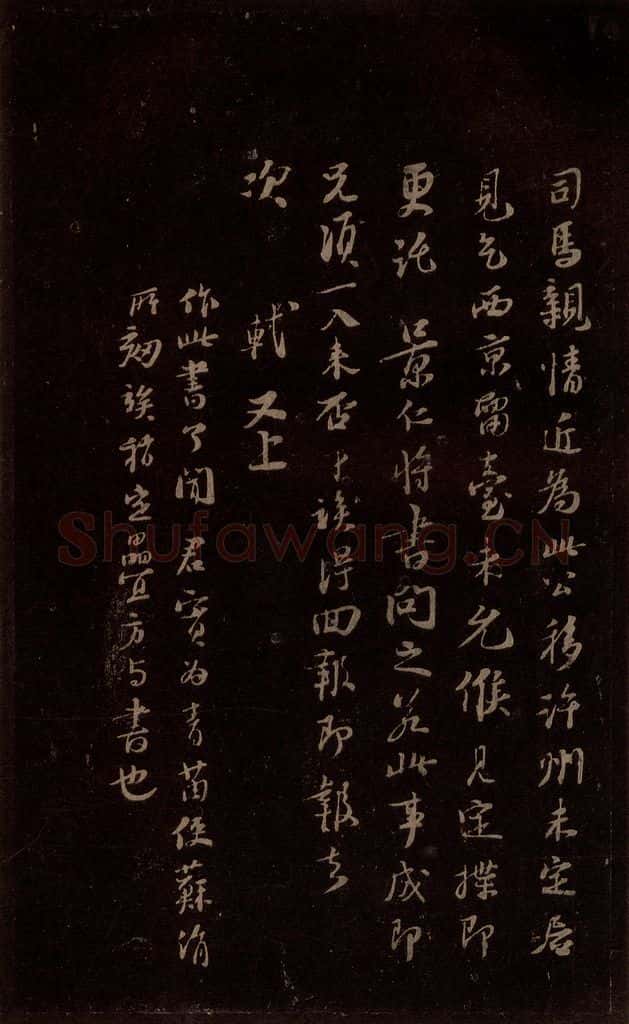 司馬親情近為此公移許州未定居
見乞西京留臺未允候見定揲即
更託 景仁將書問之若此事成即
兄須一入來否才誒得回報即報去
次 軾 又上
作此書了聞 君實為青苗使蘇涓
所劾誒稍定疊方与書也
Shufawang.CN